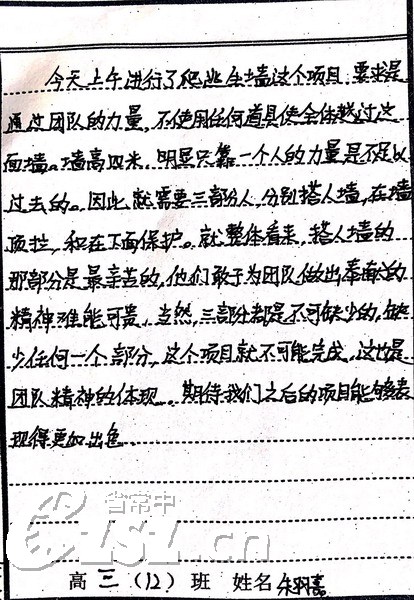 今天上午进行了爬逃生墙这个项目,要求是
通过团队的力量,不使用任何道具使全体越过这
面墙。墙高四米,明显只靠一个人的力量是不足以
过去的。因此,就需要三部分人,分别搭人墙,在墙
顶拉,和在下面保护。就整体看来,搭人墙的
那部分是最辛苦的,他们敢于为团队做出奉献的
精神难能可贵。当然,三部分都是不可缺少的,缺
少任何一个部分,这个项目就不可能完成,这也是
团队精神的体现。期待我们之后的项目能够表
现得更加出色。
省常中
181.cn
高三(12)班 姓名